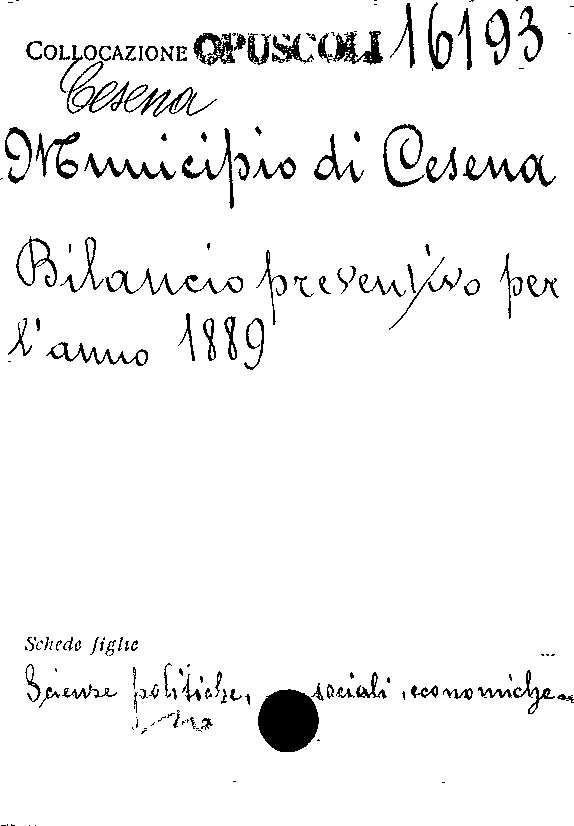 COLLOCAZIONE OPUSCOLI 16193
Cesena
Municipio di Cesena
Bilancio preventivo per
l'anno 1889
Schede figlie
Scienze politiche, sociali, economiche